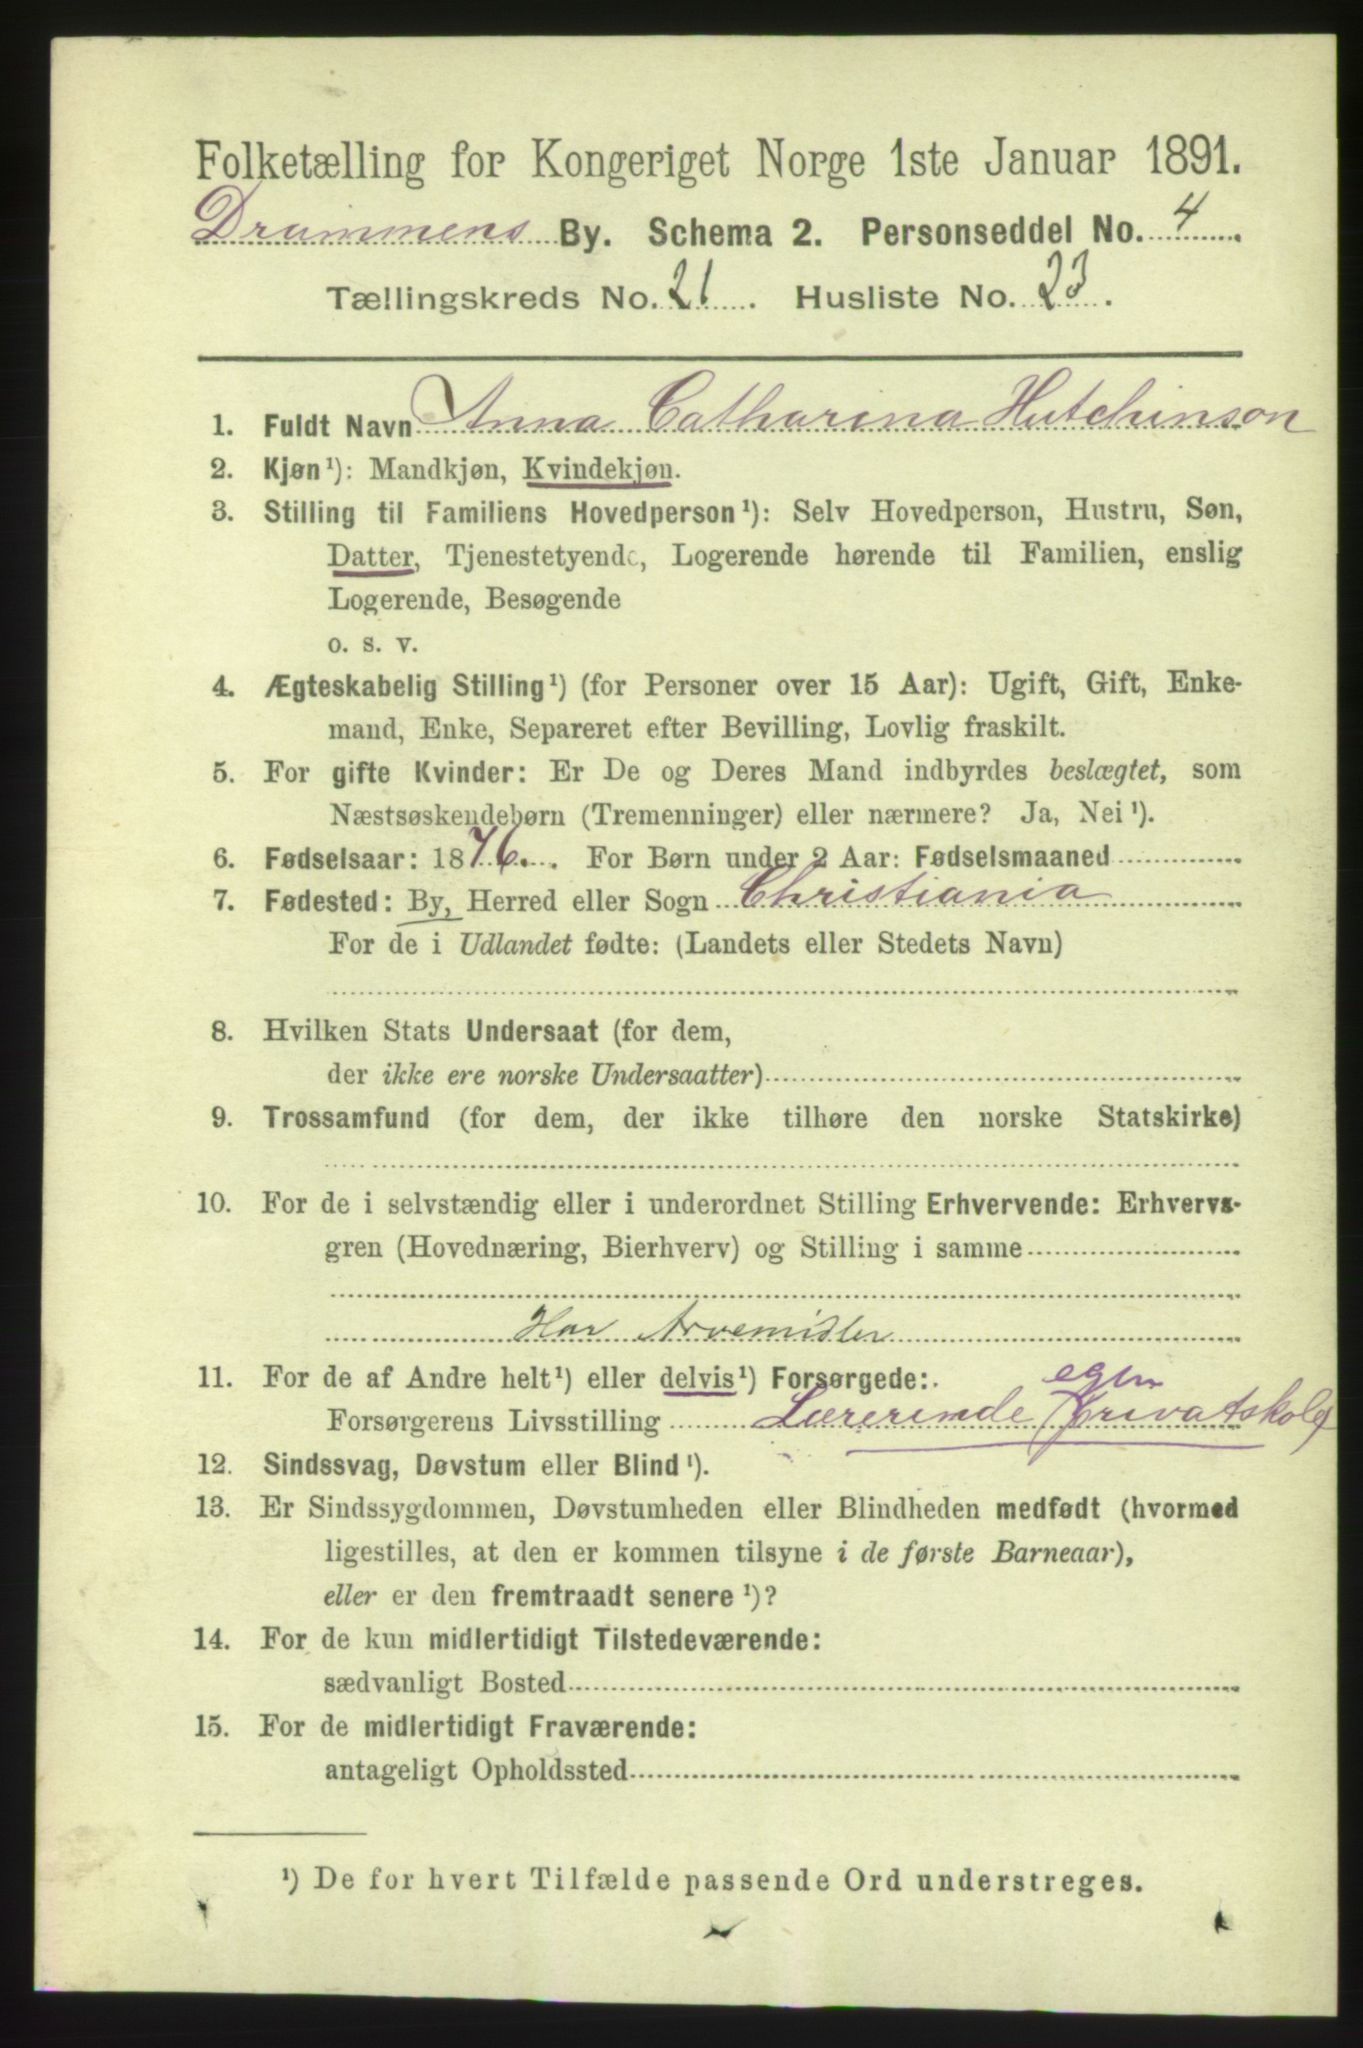 Folketælling for Kongeriget Norge 1ste Januar 1891.
Drammens By. Schema 2. Personseddel No. 4
Tællingskreds No. 21. Husliste No. 23.
1. Fuldt Navn Anna Catharina Hutchinson
2. Kjøn¹): Mandkjøn, Kvindekjøn.
3. Stilling til Familiens Hovedperson¹): Selv Hovedperson, Hustru, Søn,
Datter, Tjenestetyende, Logerende hørende til Familien, enslig
Logerende, Besøgende
o. s. v.
4. Ægteskabelig Stilling¹) (for Personer over 15 Aar): Ugift, Gift, Enke-
mand, Enke, Separeret efter Bevilling, Lovlig fraskilt.
5. For gifte Kvinder: Er De og Deres Mand indbyrdes beslægtet, som
Næstsøskendebørn (Tremenninger) eller nærmere? Ja, Nei¹).
6. Fødselsaar: 1876. For Børn under 2 Aar: Fødselsmaaned
7. Fødested: By, Herred eller Sogn Christiania
For de i Udlandet fødte: (Landets eller Stedets Navn)
8. Hvilken Stats Undersaat (for dem,
der ikke ere norske Undersaatter)
9. Trossamfund (for dem, der ikke tilhøre den norske Statskirke)
10. For de i selvstændig eller i underordnet Stilling Erhvervende: Erhvervs-
gren (Hovednæring, Bierhverv) og Stilling i samme
Har Arvemidler
11. For de af Andre helt¹) eller delvis¹) Forsørgede:
egen
Forsørgerens Livsstilling Lærerinde (privatskole)
12. Sindssvag, Døvstum eller Blind¹).
13. Er Sindssygdommen, Døvstumheden eller Blindheden medfødt (hvormed
ligestilles, at den er kommen tilsyne i de første Barneaar),
eller er den fremtraadt senere¹)?
14. For de kun midlertidigt Tilstedeværende:
sædvanligt Bosted
15. For de midlertidigt Fraværende:
antageligt Opholdssted
¹) De for hvert Tilfælde passende Ord understreges.